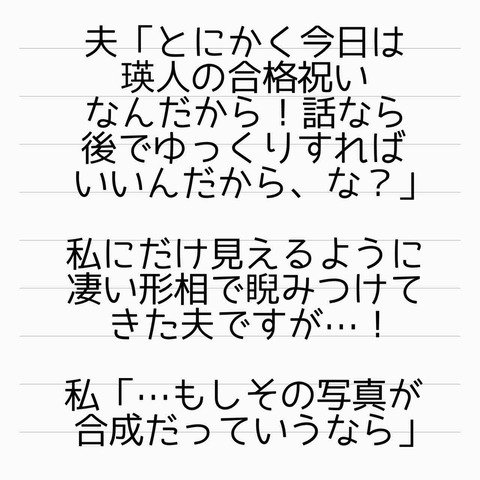 夫「とにかく今日は
瑛人の合格祝い
なんだから！話なら
後でゆっくりすれば
いいんだから、な？」
私にだけ見えるように
凄い形相で睨みつけて
きた夫ですが…！
私「…もしその写真が
合成だっていうなら」